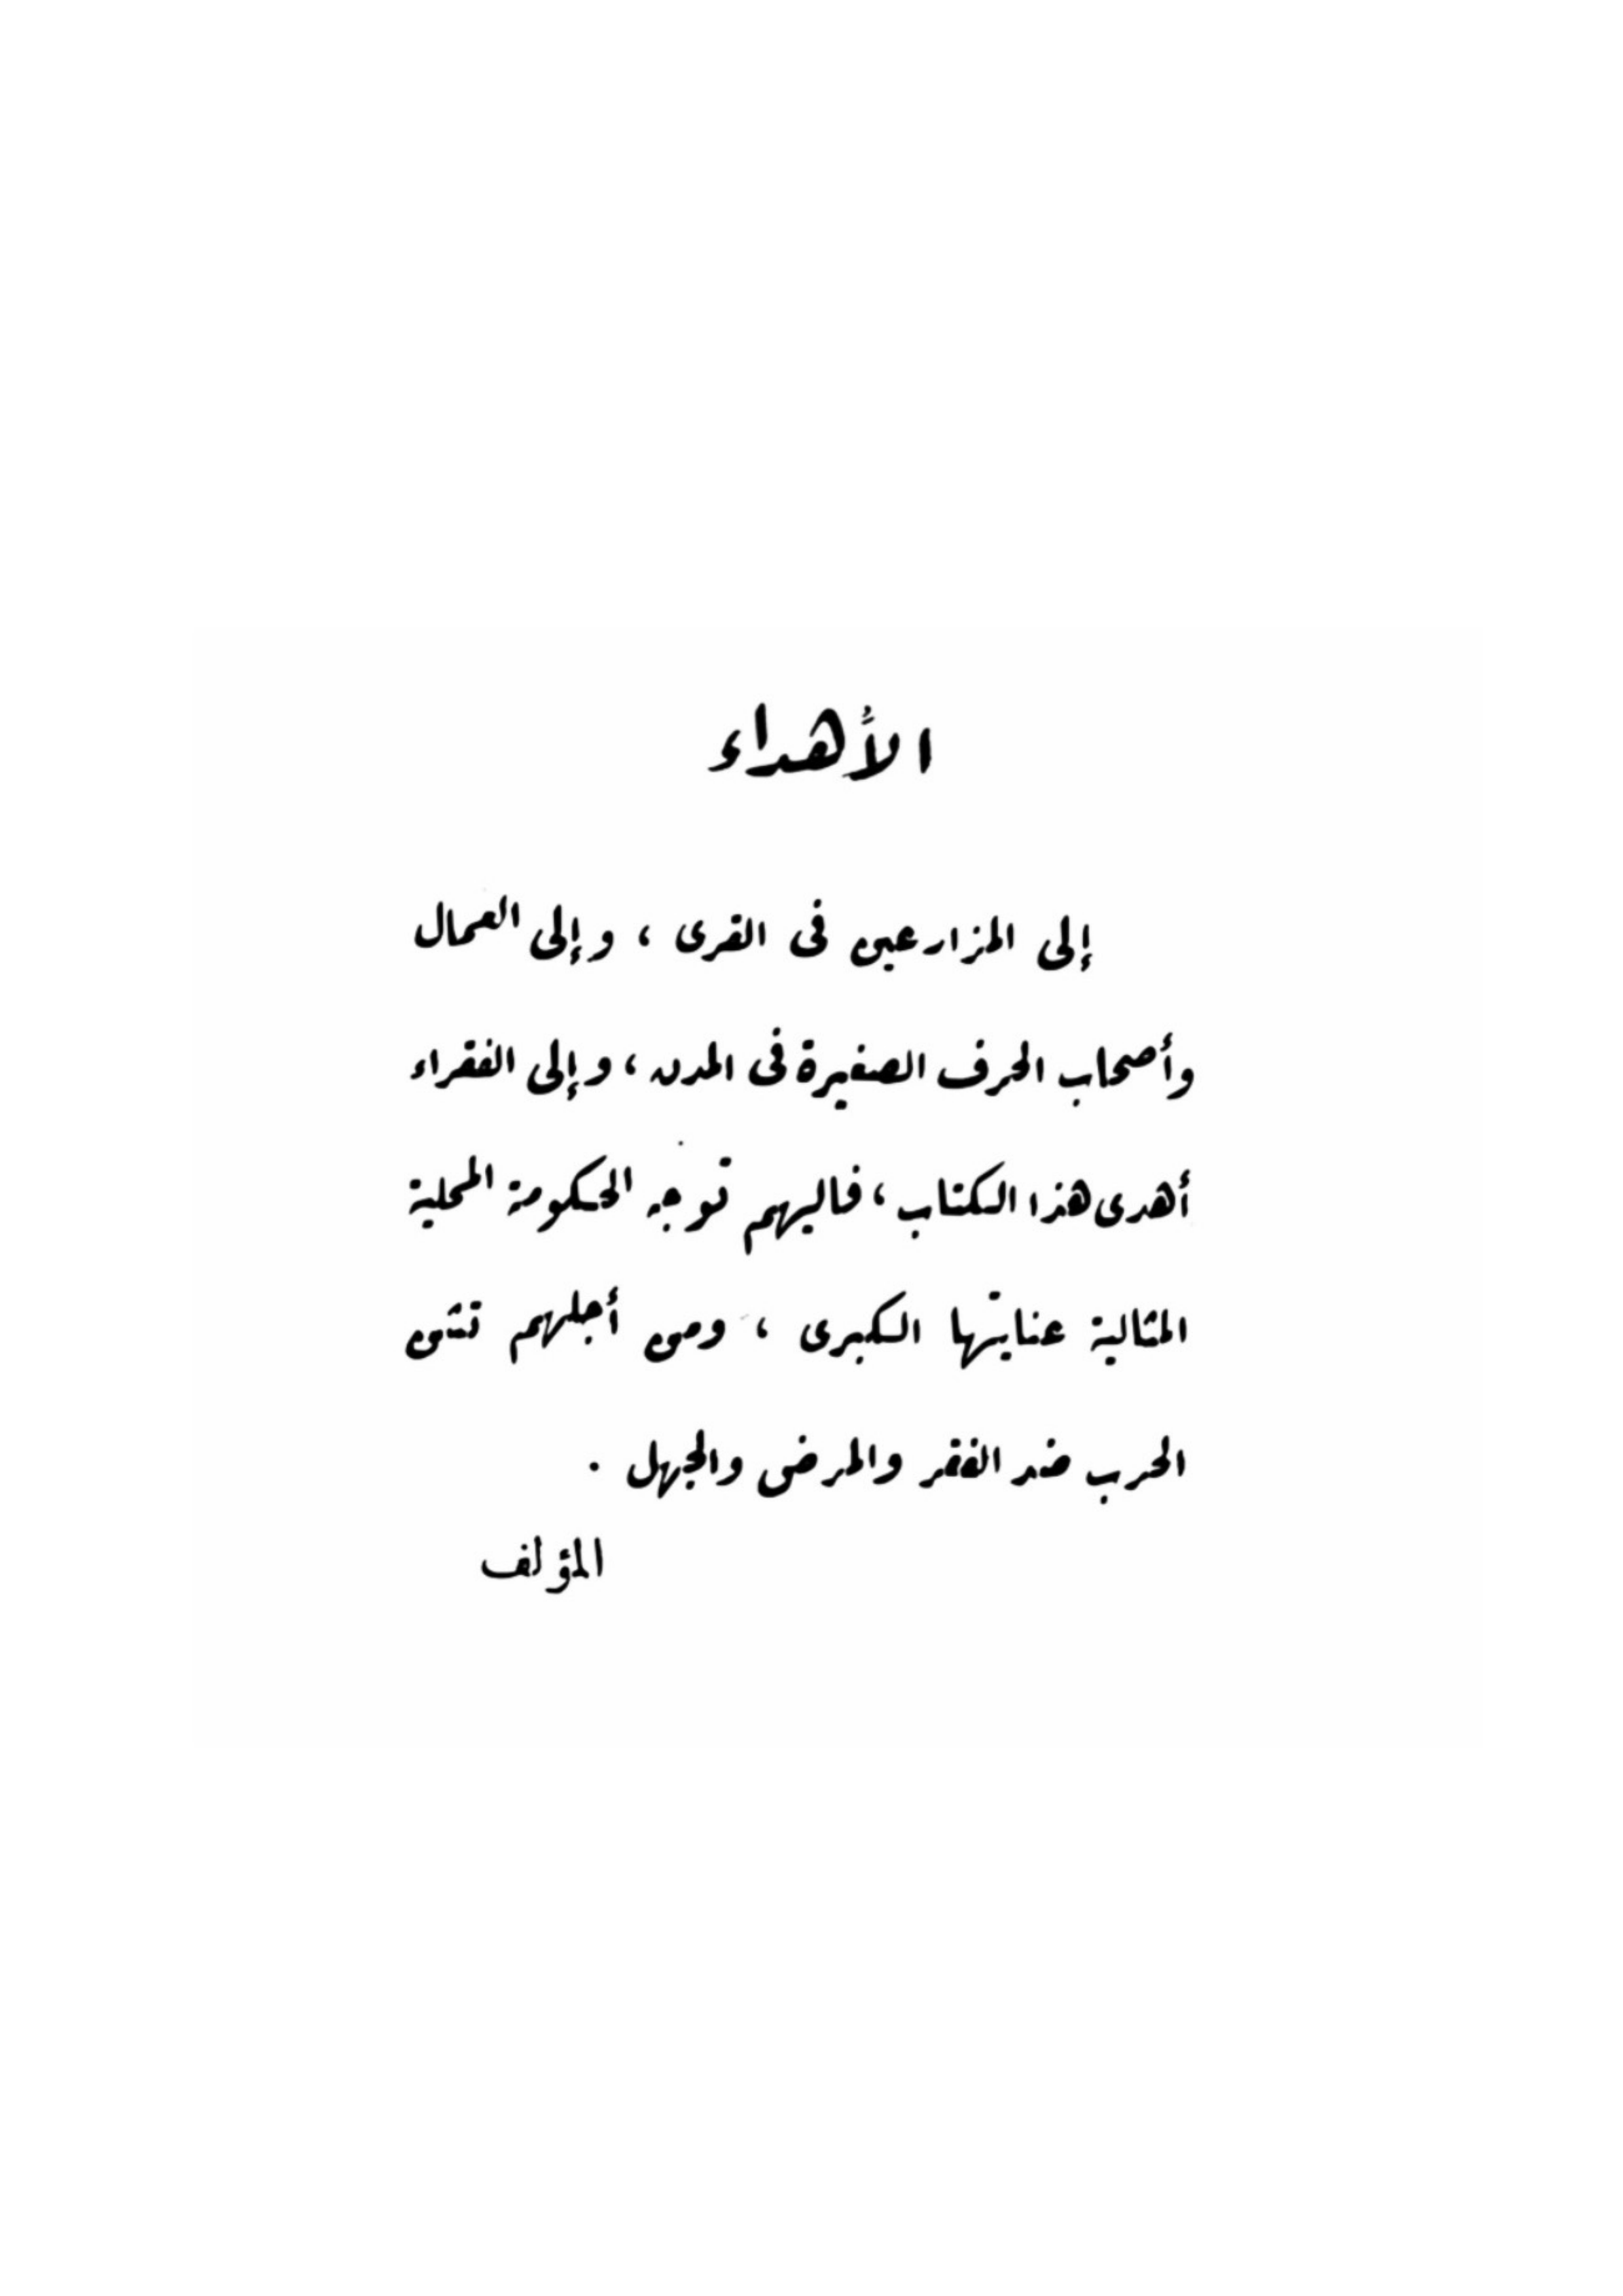 الأهداء
إلى المزارعين فى القرى ، وإلى العمال
وأصحاب الحرف الصغيرة فى المدن ، وإلى الفقراء
أهدى هذا الكتاب ، فاليهم توجه الحكومة المحلية
المثالية عنايتها الكبرى ، ومن أجلهم تشن
الحرب ضد الفقر والمرض والجهل .
المؤلف